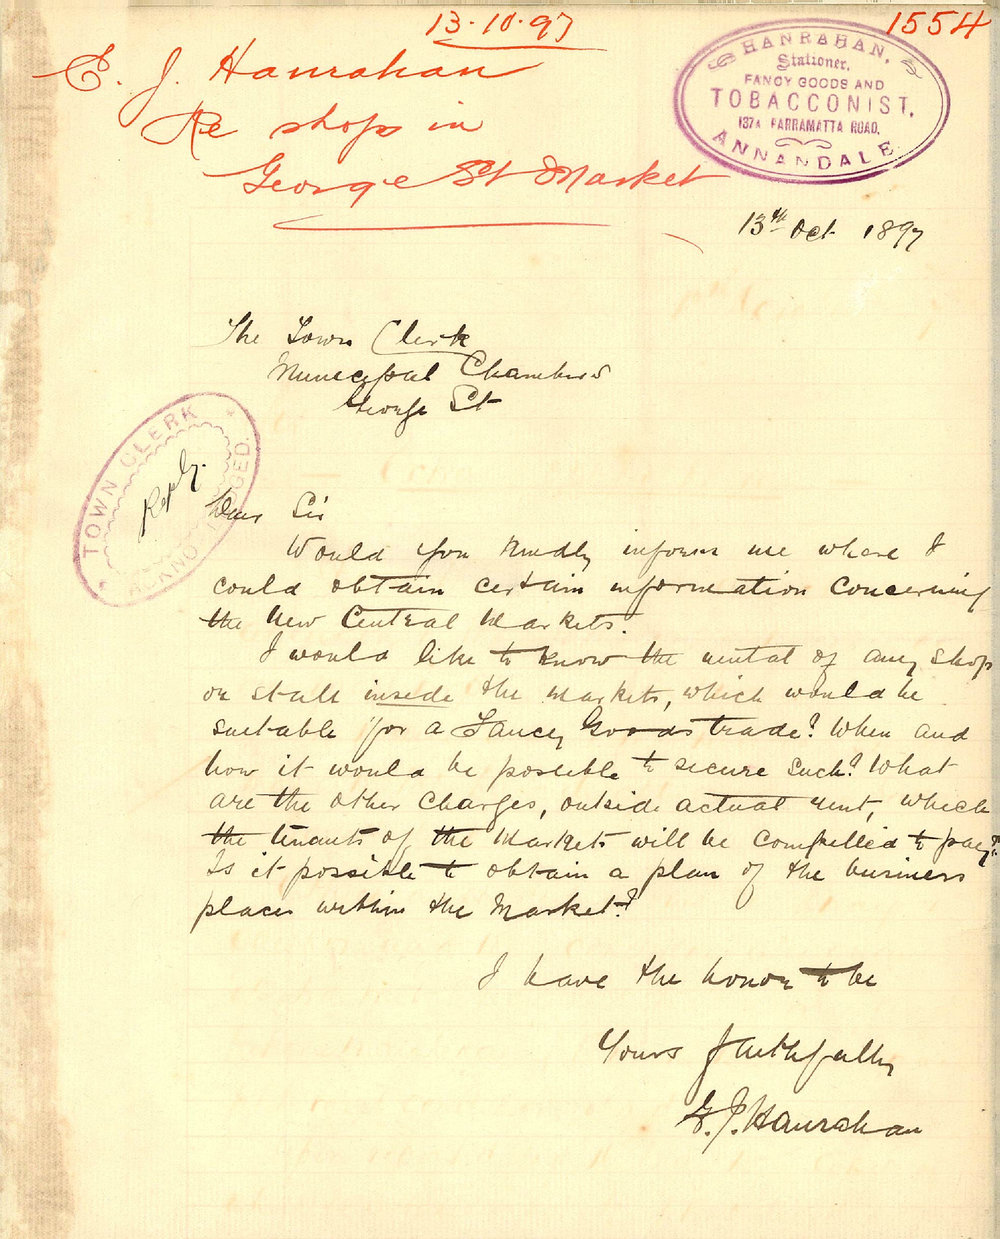 13.10.97
1554
E. J. Hanrahan
Re shops in
George St Market
HANRAHAN,
Stationer,
FANCY GOODS AND
TOBACCONIST,
137A PARRAMATTA ROAD,
ANNANDALE
13th Oct 1897
The Town Clerk
Municipal Chambers
George St
TOWN CLERK
Reply.
ACKNOWLEDGED.
Dear Sir
Would you kindly inform me where I
could obtain certain information concerning
the New Central Markets.
I would like to know the rental of any shop
or stall inside the markets, which would be
suitable for a Fancy Goods trade? When and
how it would be possible to secure such? What
are the other charges, outside actual rent, which
the tenants of the Markets will be compelled to pay?
Is it possible to obtain a plan of the business
places within the Market?
I have the honor to be
Yours faithfully
E. J. Hanrahan